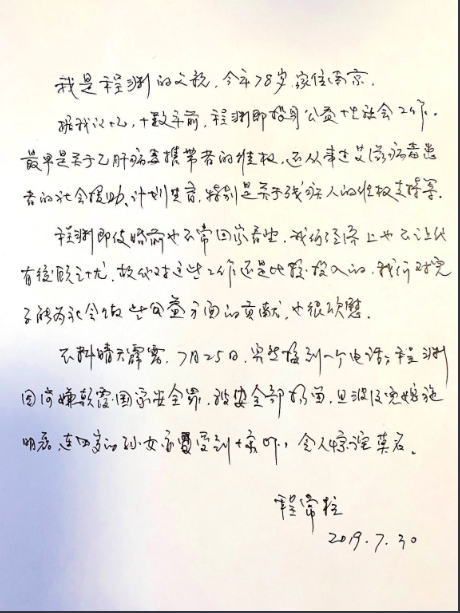 我是程渊的父亲,今年78岁,家住南京.
据我记忆,十数年前,程渊即投身公益性社会工作.
最早是关于乙肝病毒携带者的维权,还从事过艾滋病毒患
者的社会援助、计划生育、特别是关于残疾人的维权支持等.
程渊即使婚前也不常回家看望,我们经济上也不让他
有後顾之忧,故他对这些工作还是比较投入的,我们对儿
子能为社会做些公益方面的贡献,也很欣慰.
不料晴天霹雳,7月25日,突然接到一个电话:程渊
因涉嫌颠覆国家安全罪,被安全部,且波及儿媳施
明磊,连四岁的孙女受到,令人惊诧莫名.
程常柱
2019.7.30